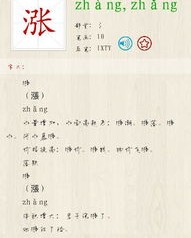 zhàng, zhǎng
涨
部首：氵
笔画：10
五笔：IXTY
字义：
涨
（漲）
zhǎng
水量增加，水面高起来：涨潮。涨落。涨
水。河水暴涨。
价格提高：涨价。涨钱。
涨
（漲）
zhàng
体积增大：豆子泡涨了。